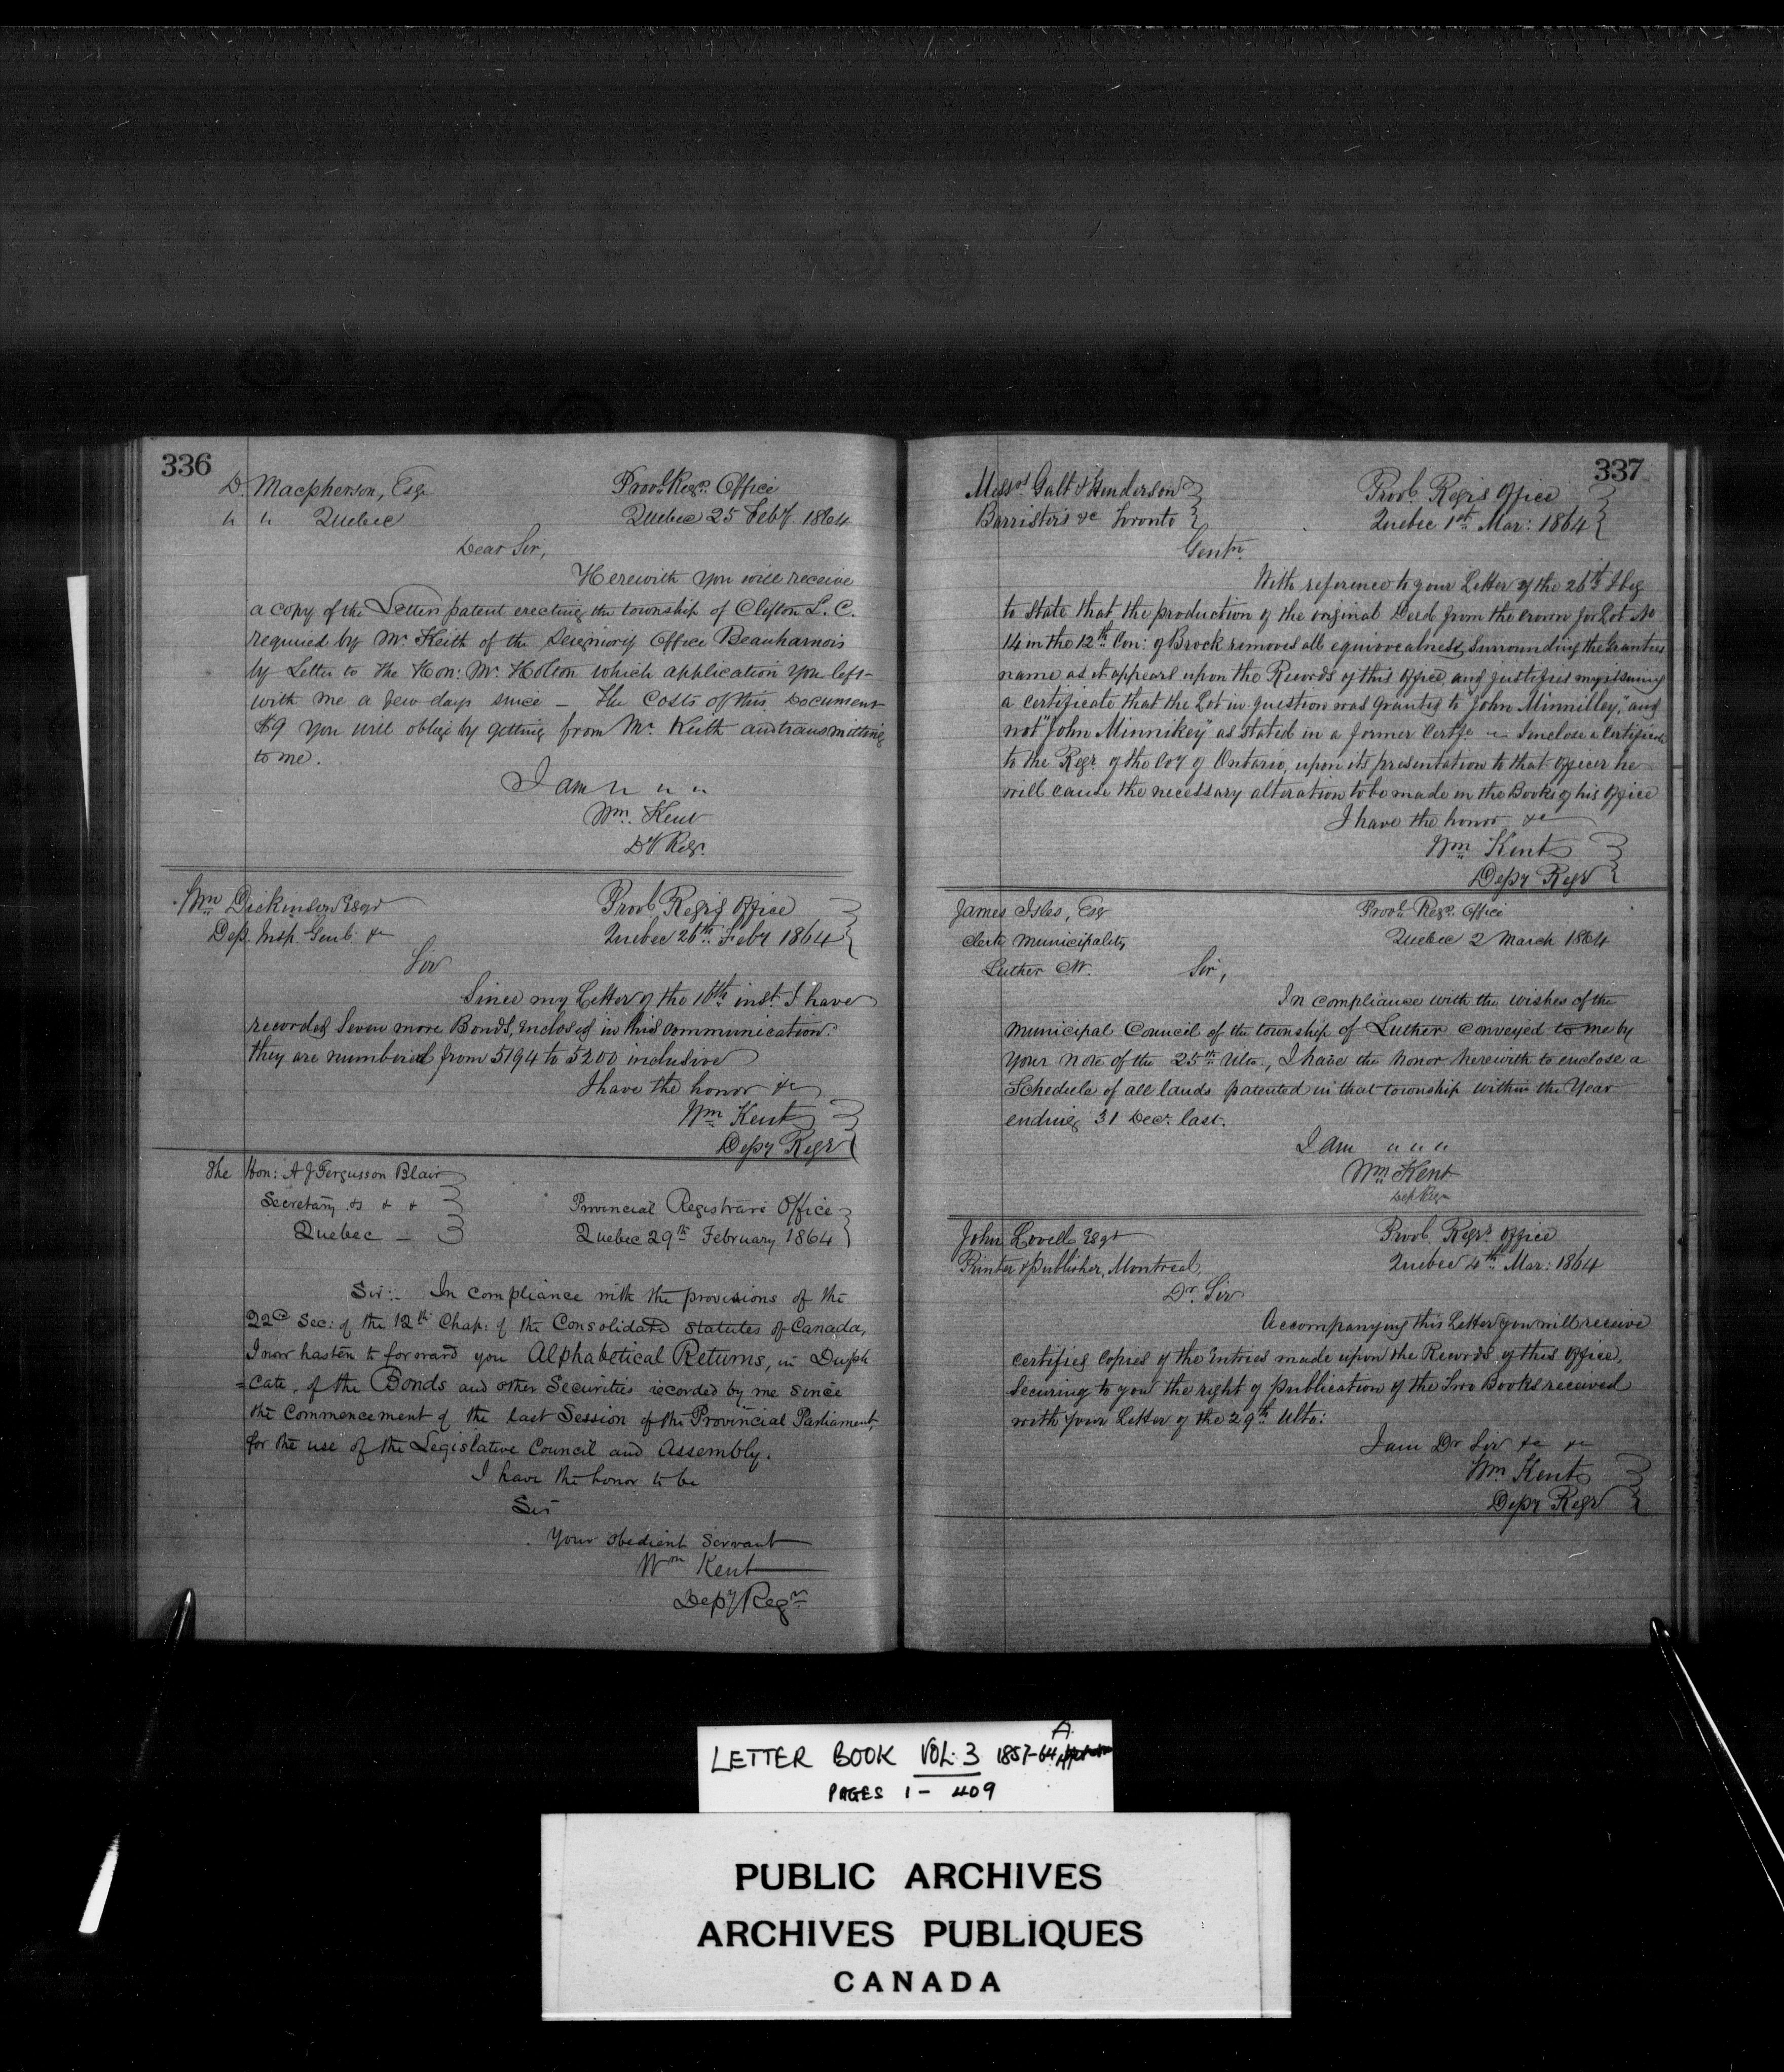 336
D. Macpherson, Esqr
" " Quebec
Provl. Regrs. Office
Quebec 25 Feby. 1864
Dear Sir,
Herewith you will receive
a copy of the Letters patent erecting the township of Clifton L. C.
required by Mr. Keith of the Seigniory Office Beauharnois
by Letter to the Hon: Mr. Holton which application you left
with me a few days since – the Costs of this Document
$9 you will oblige by getting from Mr. Keith and transmitting
to me.
I am " " "
Wm. Kent
Dy. Regr.
Wm Dickinson Esqr
Dep. Insp. Genl. &c
Provl Regrs Office
Quebec 26th Feby 1864
Sir
Since my Letter of the 16th inst. I have
recorded Seven more Bonds, enclosed in this communication.
they are numbered from 5194 to 5200 inclusive
I have the honor &c
Wm Kent
Depy Regr
The Hon: A J Fergusson Blair
Secretary & & &
Quebec –
Provincial Registrars Office
Quebec 29th February 1864
Sir:- In compliance with the provisions of the
22d Sec: of the 12th Chap: of the Consolidated Statutes of Canada,
I now hasten to forward you Alphabetical Returns, in Dupli
=cate, of the Bonds and other Securities recorded by me since
the Commencement of the last Session of the Provincial Parliament,
for the use of the Legislative Council and Assembly.
I have the honor to be
Sir
Your obedient Servant
Wm Kent
Depy Regr
337
Messrs Galt & Henderson
Barristers &c Toronto
Provl. Regrs Office
Quebec 1st Mar: 1864
Gentn
With reference to your Letter of the 26th I beg
to state that the production of the original Deed from the crown for Lot No
14 in the 12th Con: of Brock removes all equivocalness surrounding the Grantees
name as it appears upon the Records of this Office, and justifies my issuing
a certificate that the Lot in question was granted to "John Minnilley," and
not "John Minnikey" as stated in a former Certfe – I enclose a Certificate
to the Regr. of the Coy of Ontario, upon its presentation to that officer he
will cause the necessary alteration to be made in the Books of his Office
I have the honor &c
Wm Kent
Depy Regr
James Isles, Esqr
Clerk Municipality
Luther C.W.
Provl. Regrs. Office
Quebec 2 March 1864
Sir,
In compliance with the wishes of the
Municipal Council of the township of Luther conveyed to me by
your note of the 25th Ulto., I have the honor herewith to enclose a
Schedule of all lands patented in that township within the Year
ending 31 Decr. last.
I am " " "
Wm. Kent
Dep Regr
John Lovell Esqr
Printer & publisher, Montreal,
Provl. Regrs. Office
Quebec 4th Mar: 1864
Dr. Sir
Accompanying this Letter you will receive
certified Copies of the Entries made upon the Records of this Office,
securing to you the right of publication of the Two Books received
with your Letter of the 29th Ulto:
I am Dr Sir &c &c
Wm. Kent
Depy Regr
LETTER BOOK VOL. 3 1857-64 A
PAGES 1 - 409
PUBLIC ARCHIVES
ARCHIVES PUBLIQUES
CANADA